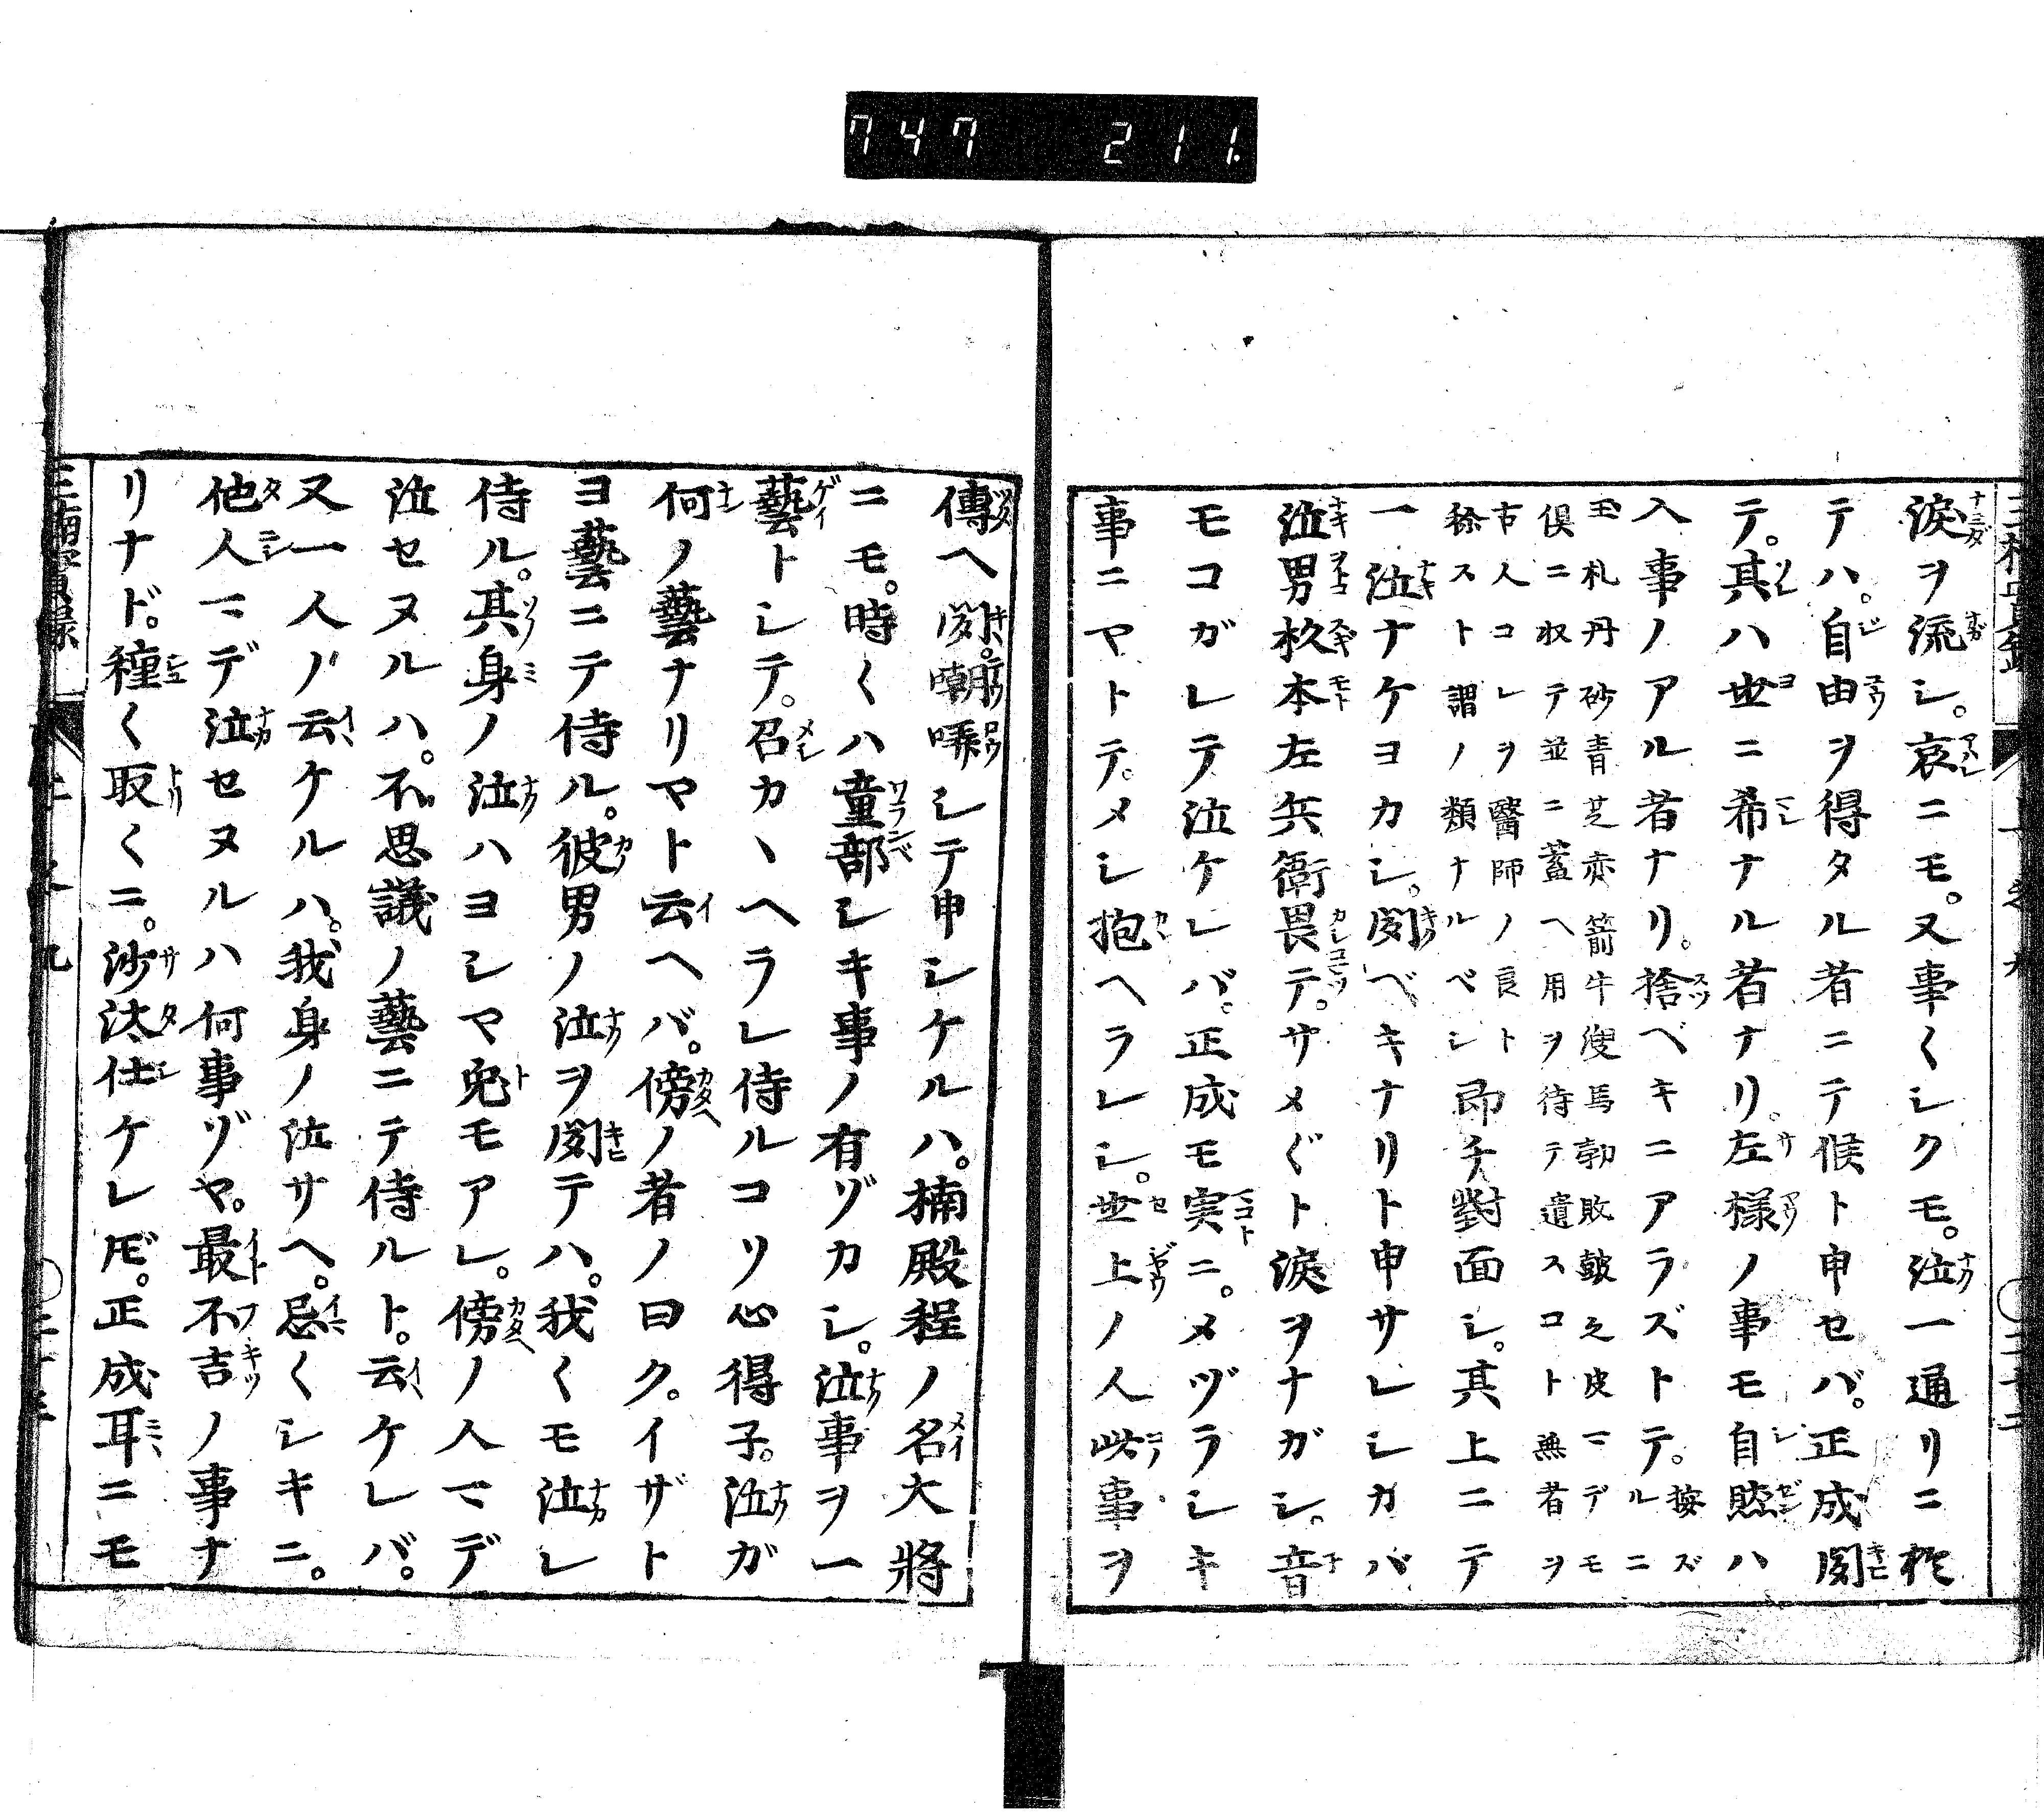 747 211.
淚ヲ流シ。哀ニモ。又事〱シクモ。泣一通リニ於
テハ。自由ヲ得タル者ニテ候ト申セバ。正成聞
テ。其ハ世ニ希ナル者ナリ。左様ノ事モ自然ハ
入事ノアル者ナリ。捨ベキニアラズトテ。按ズルニ
玉札丹砂青芝赤箭牛溲馬勃敗鼓之皮マデモ
倶ニ收テ並ニ蓄ヘ用ヲ待テ遺スコト無者ヲ
古人コレヲ醫師ノ良ト
稱スト謂ノ類ナルベシ
即チ對面シ。其上ニテ
一泣ナケヨカシ。聞ベキナリト申サレシガバ
泣男杦本左兵衛畏テ。サメ〲ト淚ヲナガシ。音
モコガレテ泣ケレバ。正成モ実ニ。メヅラシキ
事ニヤトテ。メシ抱ヘラレシ。世上ノ人此事ヲ
傳ヘ聞。嘲哢シテ申シケルハ。楠殿程ノ名大將
ニモ。時〱ハ童部シキ事ノ有ゾカシ。泣事ヲ一
藝トシテ。召カヽヘラレ侍ルコソ心得子。泣ガ
何ノ藝ナリヤト云ヘバ。傍ノ者ノ曰ク。イザト
ヨ藝ニテ侍ル。彼男ノ泣ヲ聞テハ。我〱モ泣レ
侍ル。其身ノ泣ハヨシヤ兎モアレ。傍ノ人マデ
泣セヌルハ。不思議ノ藝ニテ侍ルト。云ケレバ。
又一人ノ云ケルハ。我身ノ泣サヘ。忌〱シキニ。
他人マデ泣セヌルハ何事ゾヤ。最不吉ノ事ナ
リナド。種〱取〱ニ。沙汰仕ケレ𪜈。正成耳ニモ